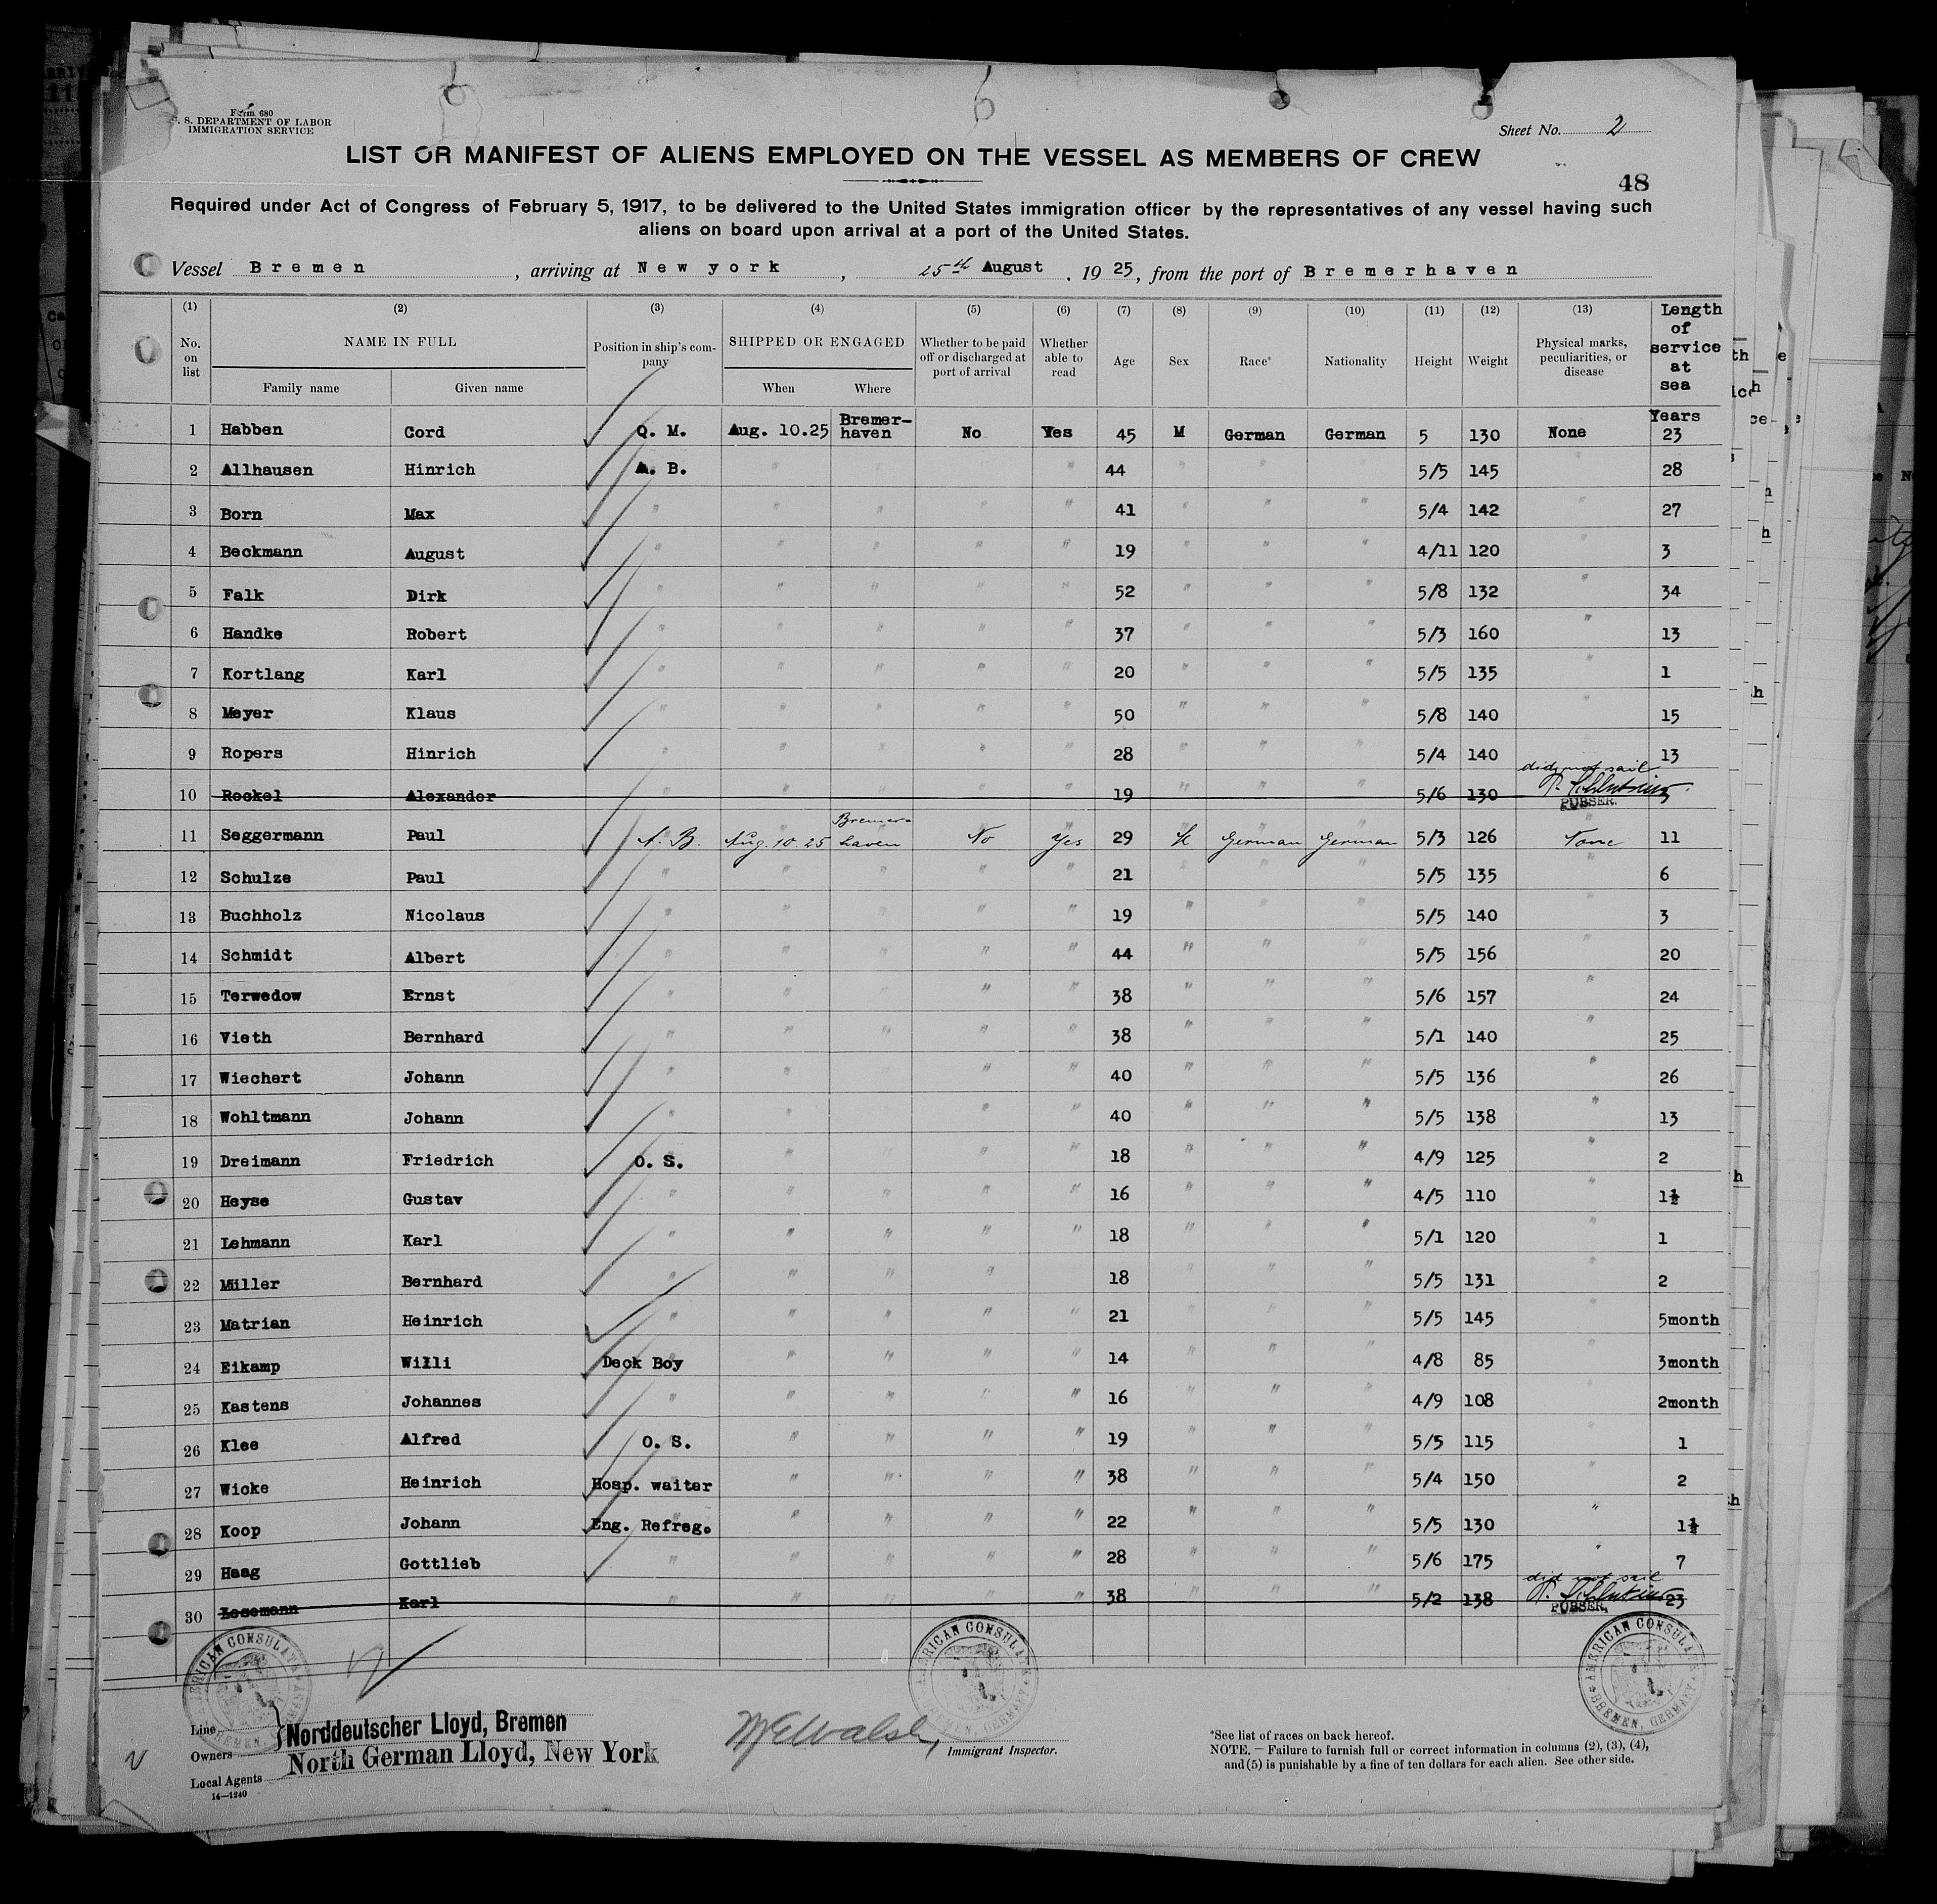 Form 680
U. S. DEPARTMENT OF LABOR
IMMIGRATION SERVICE
Sheet No. 2
LIST OR MANIFEST OF ALIENS EMPLOYED ON THE VESSEL AS MEMBERS OF CREW
48
Required under Act of Congress of February 5, 1917, to be delivered to the United States immigration officer by the representatives of any vessel having such
aliens on board upon arrival at a port of the United States.
Vessel Bremen, arriving at New york, 25th August, 1925, from the port of Bremerhaven
(1) (2) (3) (4) (5) (6) (7) (8) (9) (10) (11) (12) (13) Length of service at sea
No. on list NAME IN FULL Position in ship's company SHIPPED OR ENGAGED Whether to be paid off or discharged at port of arrival Whether able to read Age Sex Race* Nationality Height Weight Physical marks, peculiarities, or disease
Family name Given name When Where
Years
1 Habben Cord Q. M. Aug. 10.25 Bremer-haven No Yes 45 M German German 5 130 None 23
2 Allhausen Hinrich A. B. " " " " 44 " " " 5/5 145 " 28
3 Born Max " " " " " 41 " " " 5/4 142 " 27
4 Beckmann August " " " " " 19 " " " 4/11 120 " 3
5 Falk Dirk " " " " " 52 " " " 5/8 132 " 34
6 Handke Robert " " " " " 37 " " " 5/3 160 " 13
7 Kortlang Karl " " " " " 20 " " " 5/5 135 " 1
8 Meyer Klaus " " " " " 50 " " " 5/8 140 " 15
9 Ropers Hinrich " " " " " 28 " " " 5/4 140 " 13
did not sail
10 Rockel Alexander " " " " " 19 " " " 5/6 130 PURSER. 3
11 Seggermann Paul A. B. Aug. 10 25 Bremer-haven No Yes 29 M German German 5/3 126 None 11
12 Schulze Paul " " " " " 21 " " " 5/5 135 " 6
13 Buchholz Nicolaus " " " " " 19 " " " 5/5 140 " 3
14 Schmidt Albert " " " " " 44 " " " 5/5 156 " 20
15 Terwedow Ernst " " " " " 38 " " " 5/6 157 " 24
16 Vieth Bernhard " " " " " 38 " " " 5/1 140 " 25
17 Wiechert Johann " " " " " 40 " " " 5/5 136 " 26
18 Wohltmann Johann " " " " " 40 " " " 5/5 138 " 13
19 Dreimann Friedrich O. S. " " " " 18 " " " 4/9 125 " 2
20 Heyse Gustav " " " " " 16 " " " 4/5 110 " 1½
21 Lehmann Karl " " " " " 18 " " " 5/1 120 " 1
22 Müller Bernhard " " " " " 18 " " " 5/5 131 " 2
23 Matrian Heinrich " " " " " 21 " " " 5/5 145 " 5month
24 Eikamp Willi Deck Boy " " " " 14 " " " 4/8 85 " 3month
25 Kastens Johannes " " " " " 16 " " " 4/9 108 " 2month
26 Klee Alfred O. S. " " " " 19 " " " 5/5 115 " 1
27 Wicke Heinrich Hosp. waiter " " " " 38 " " " 5/4 150 " 2
28 Koop Johann Eng. Refreg. " " " " 22 " " " 5/5 130 " 1½
29 Haag Gottlieb " " " " " 28 " " " 5/6 175 " 7
did not sail
30 Losemann Karl " " " " " 38 " " " 5/2 138 PURSER. 23
AMERICAN CONSULATE BREMEN, GERMANY
AMERICAN CONSULATE BREMEN, GERMANY
AMERICAN CONSULATE BREMEN, GERMANY
Line
Owners
Local Agents
Norddeutscher Lloyd, Bremen
North German Lloyd, New York
14—1240
W E Walsh, Immigrant Inspector.
*See list of races on back hereof.
NOTE.—Failure to furnish full or correct information in columns (2), (3), (4),
and (5) is punishable by a fine of ten dollars for each alien. See other side.